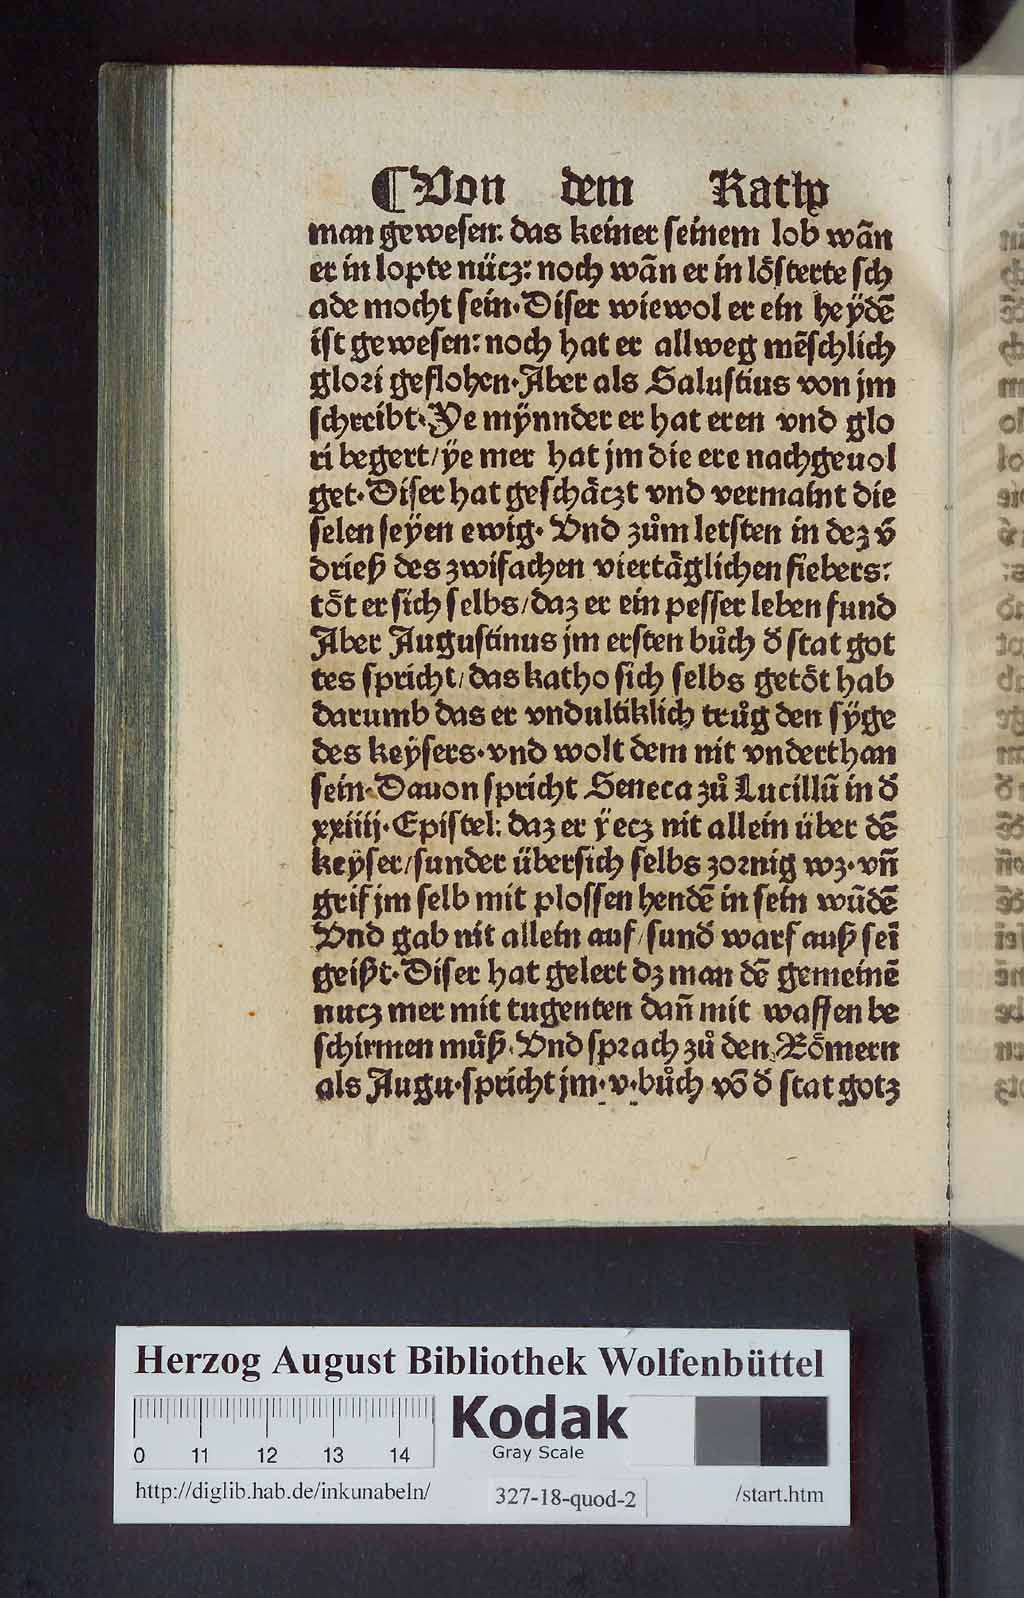 ¶Von dem Kathꝫ
man gewesen: das keiner seinem lob wān
er in lopte nücz: noch wān er in lösterte sch
ade mocht sein. Diser wiewol er ein heÿdē
ist gewesen: noch hat er allweg mēschlich
glori geflohen. Aber als Salustius von jm
schreibt. Ye mÿnnder er hat eren vnd glo
ri begert/ ÿe mer hat jm die ere nachgeuol
get. Diser hat geschäczt vnd vermaint die
selen seÿen ewig. Vnd zům letsten in dez v̄
drieß des zwifachen viertäglichen fiebers:
töt er sich selbs/ daz er ein pesser leben fund
Aber Augustinus jm ersten bůch d̄ stat got
tes spricht/ das katho sich selbs getöt hab
darumb das er vndultiklich trůg den sÿge
des keÿsers. vnd wolt dem nit vnderthan
sein. Dauon spricht Seneca zů Lucillū in d̄
xxiiij. Epistel: daz er ÿecz nit allein über dē
keÿser/ sunder übersich selbs zornig wz. vn̄
grif jm selb mit plossen hendē in sein wūdē
Vnd gab nit allein auf/ sund̄ warf auß seī
geißt. Diser hat gelert dz man dē gemeinē
nucz mer mit tugenten dan̄ mit waffen be
schirmen müß. Vnd sprach zů den Römern
als Augu. spricht jm. v. bůch vō d̄ stat gotz
Herzog August Bibliothek Wolfenbüttel
0 11 12 13 14
Kodak
Gray Scale
http://diglib.hab.de/inkunabeln/
327-18-quod-2
/start.htm